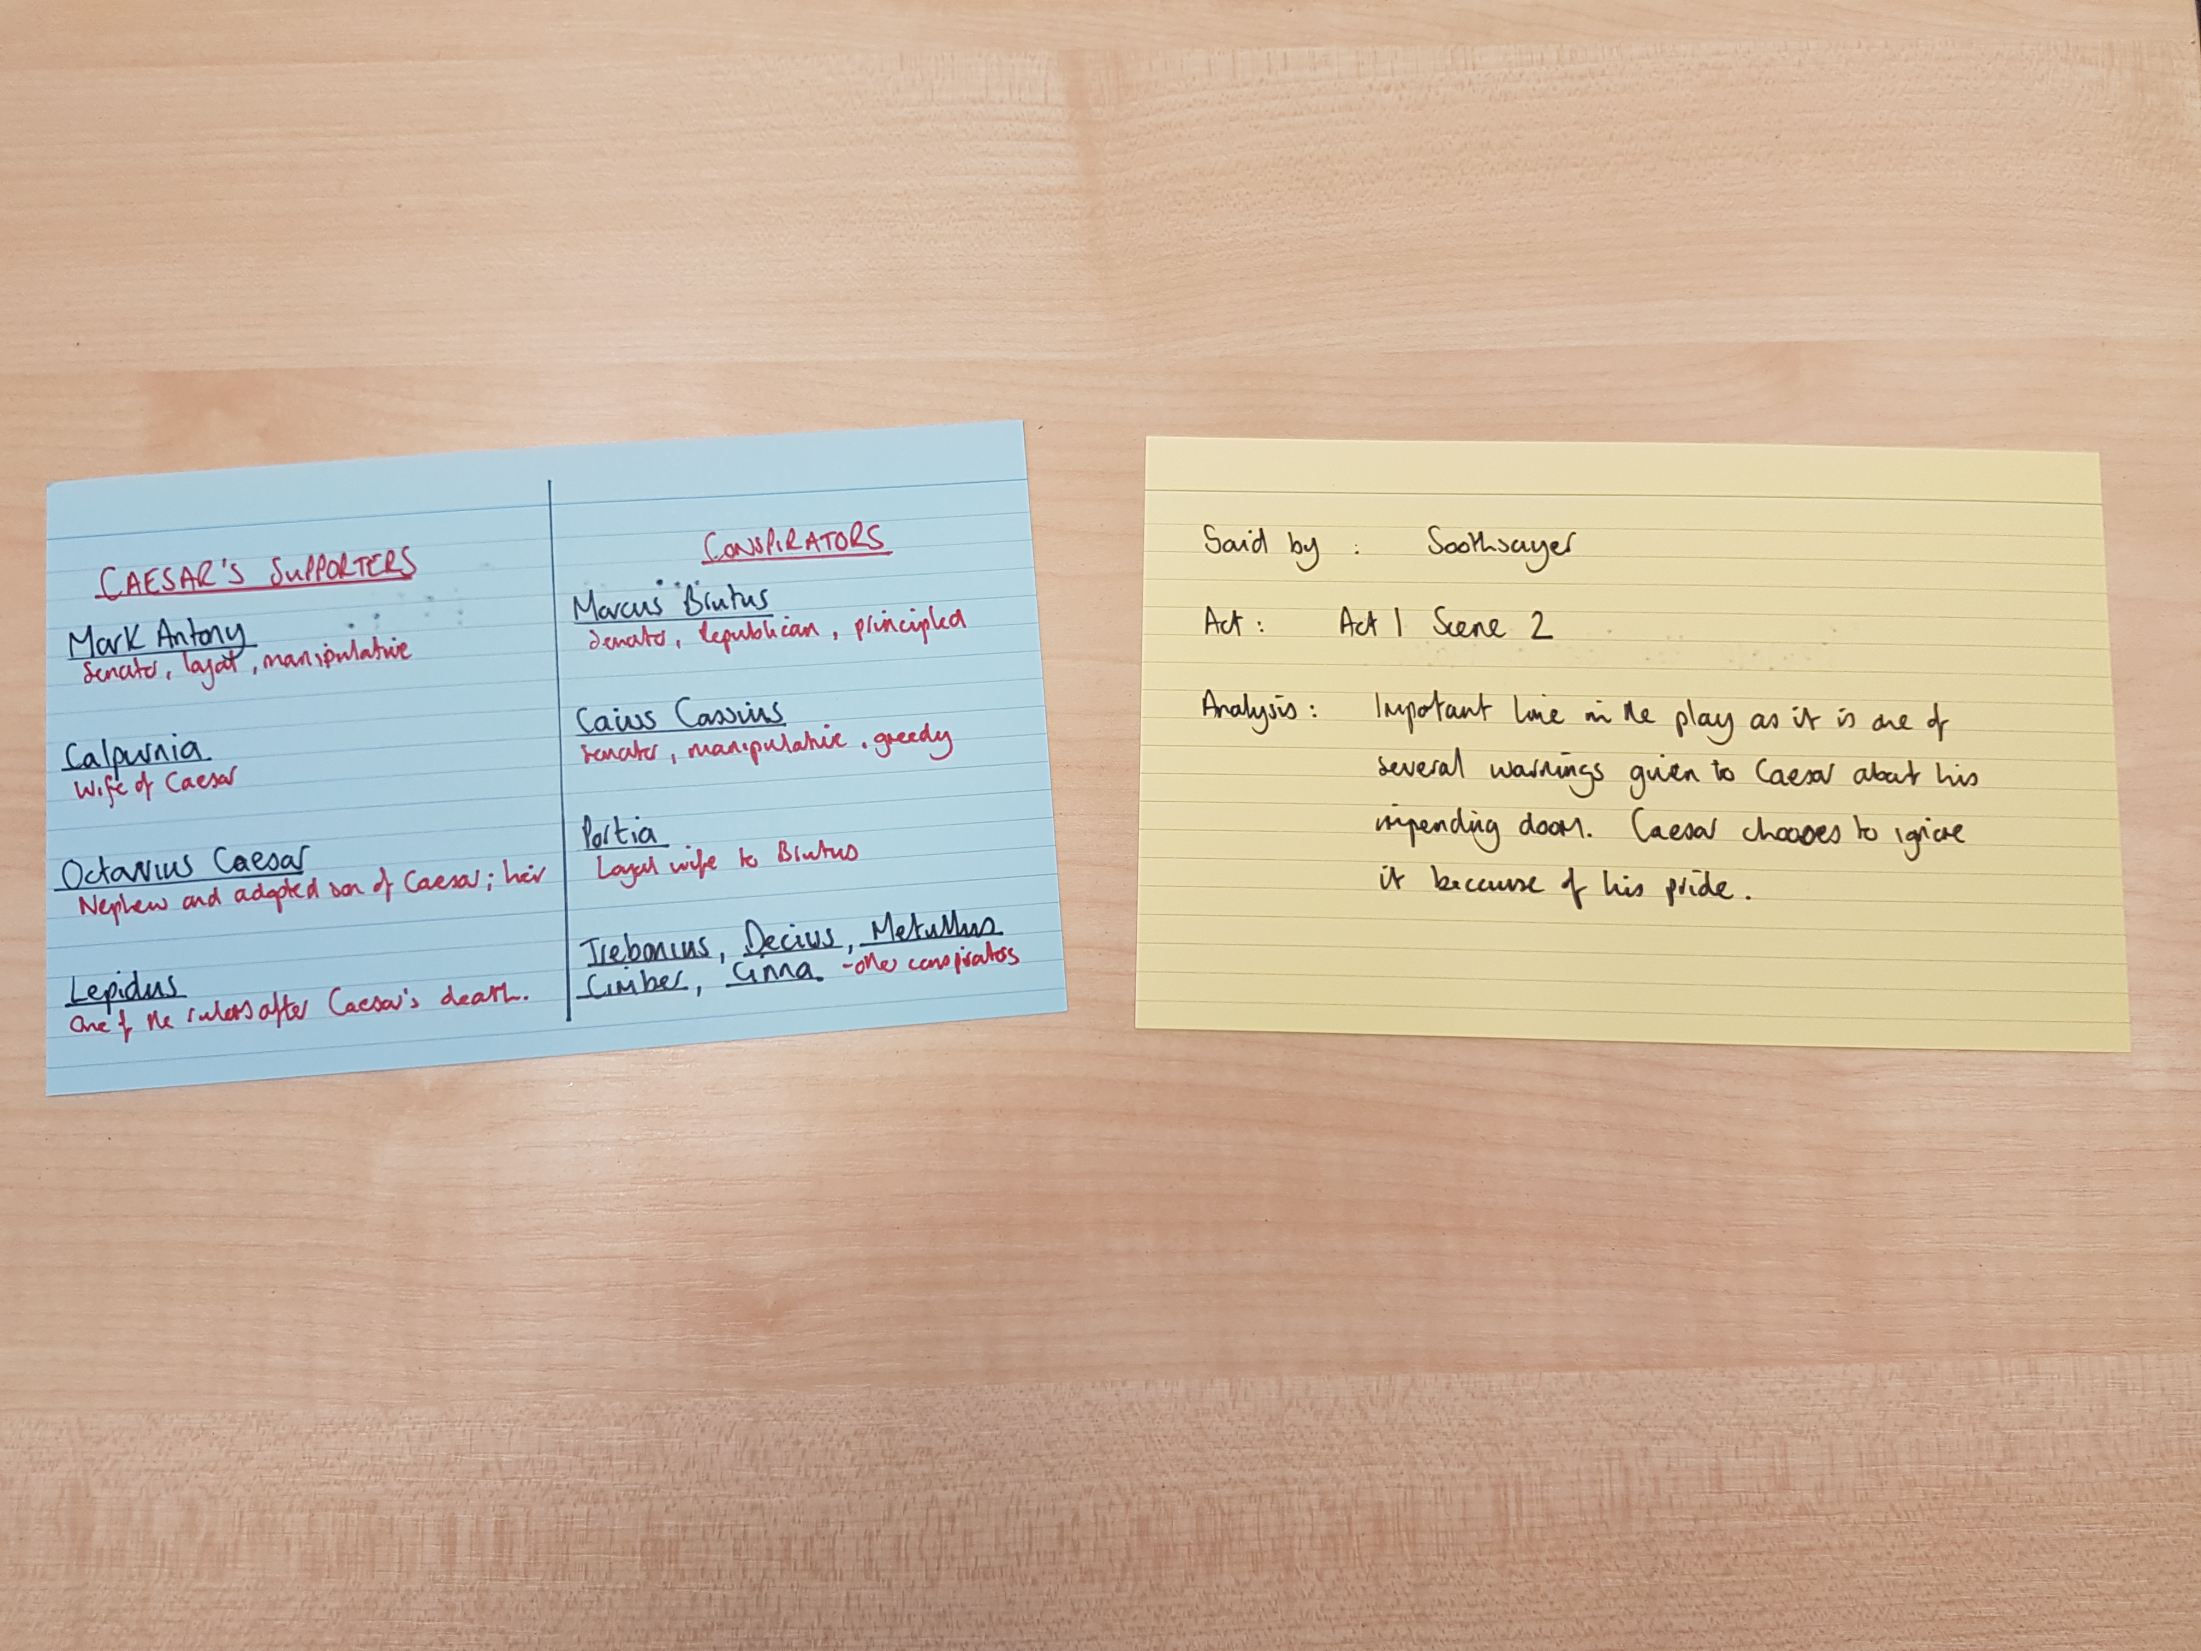 CAESAR'S SUPPORTERS
Mark Antony
Senator, loyal, manipulative
Calpurnia
Wife of Caesar
Octavius Caesar
Nephew and adopted son of Caesar; heir
Lepidus
One of the rulers after Caesar's death.
CONSPIRATORS
Marcus Brutus
Senator, republican, principled
Caius Cassius
senator, manipulative, greedy
Portia
Loyal wife to Brutus
Trebonius, Decius, Metullus
Cimber, Cinna - other conspirators
Said by : Soothsayer
Act : Act 1 Scene 2
Analysis : Impotant line in the play as it is one of
several warnings given to Caesar about his
impending doom. Caesar chooses to ignore
it because of his pride.